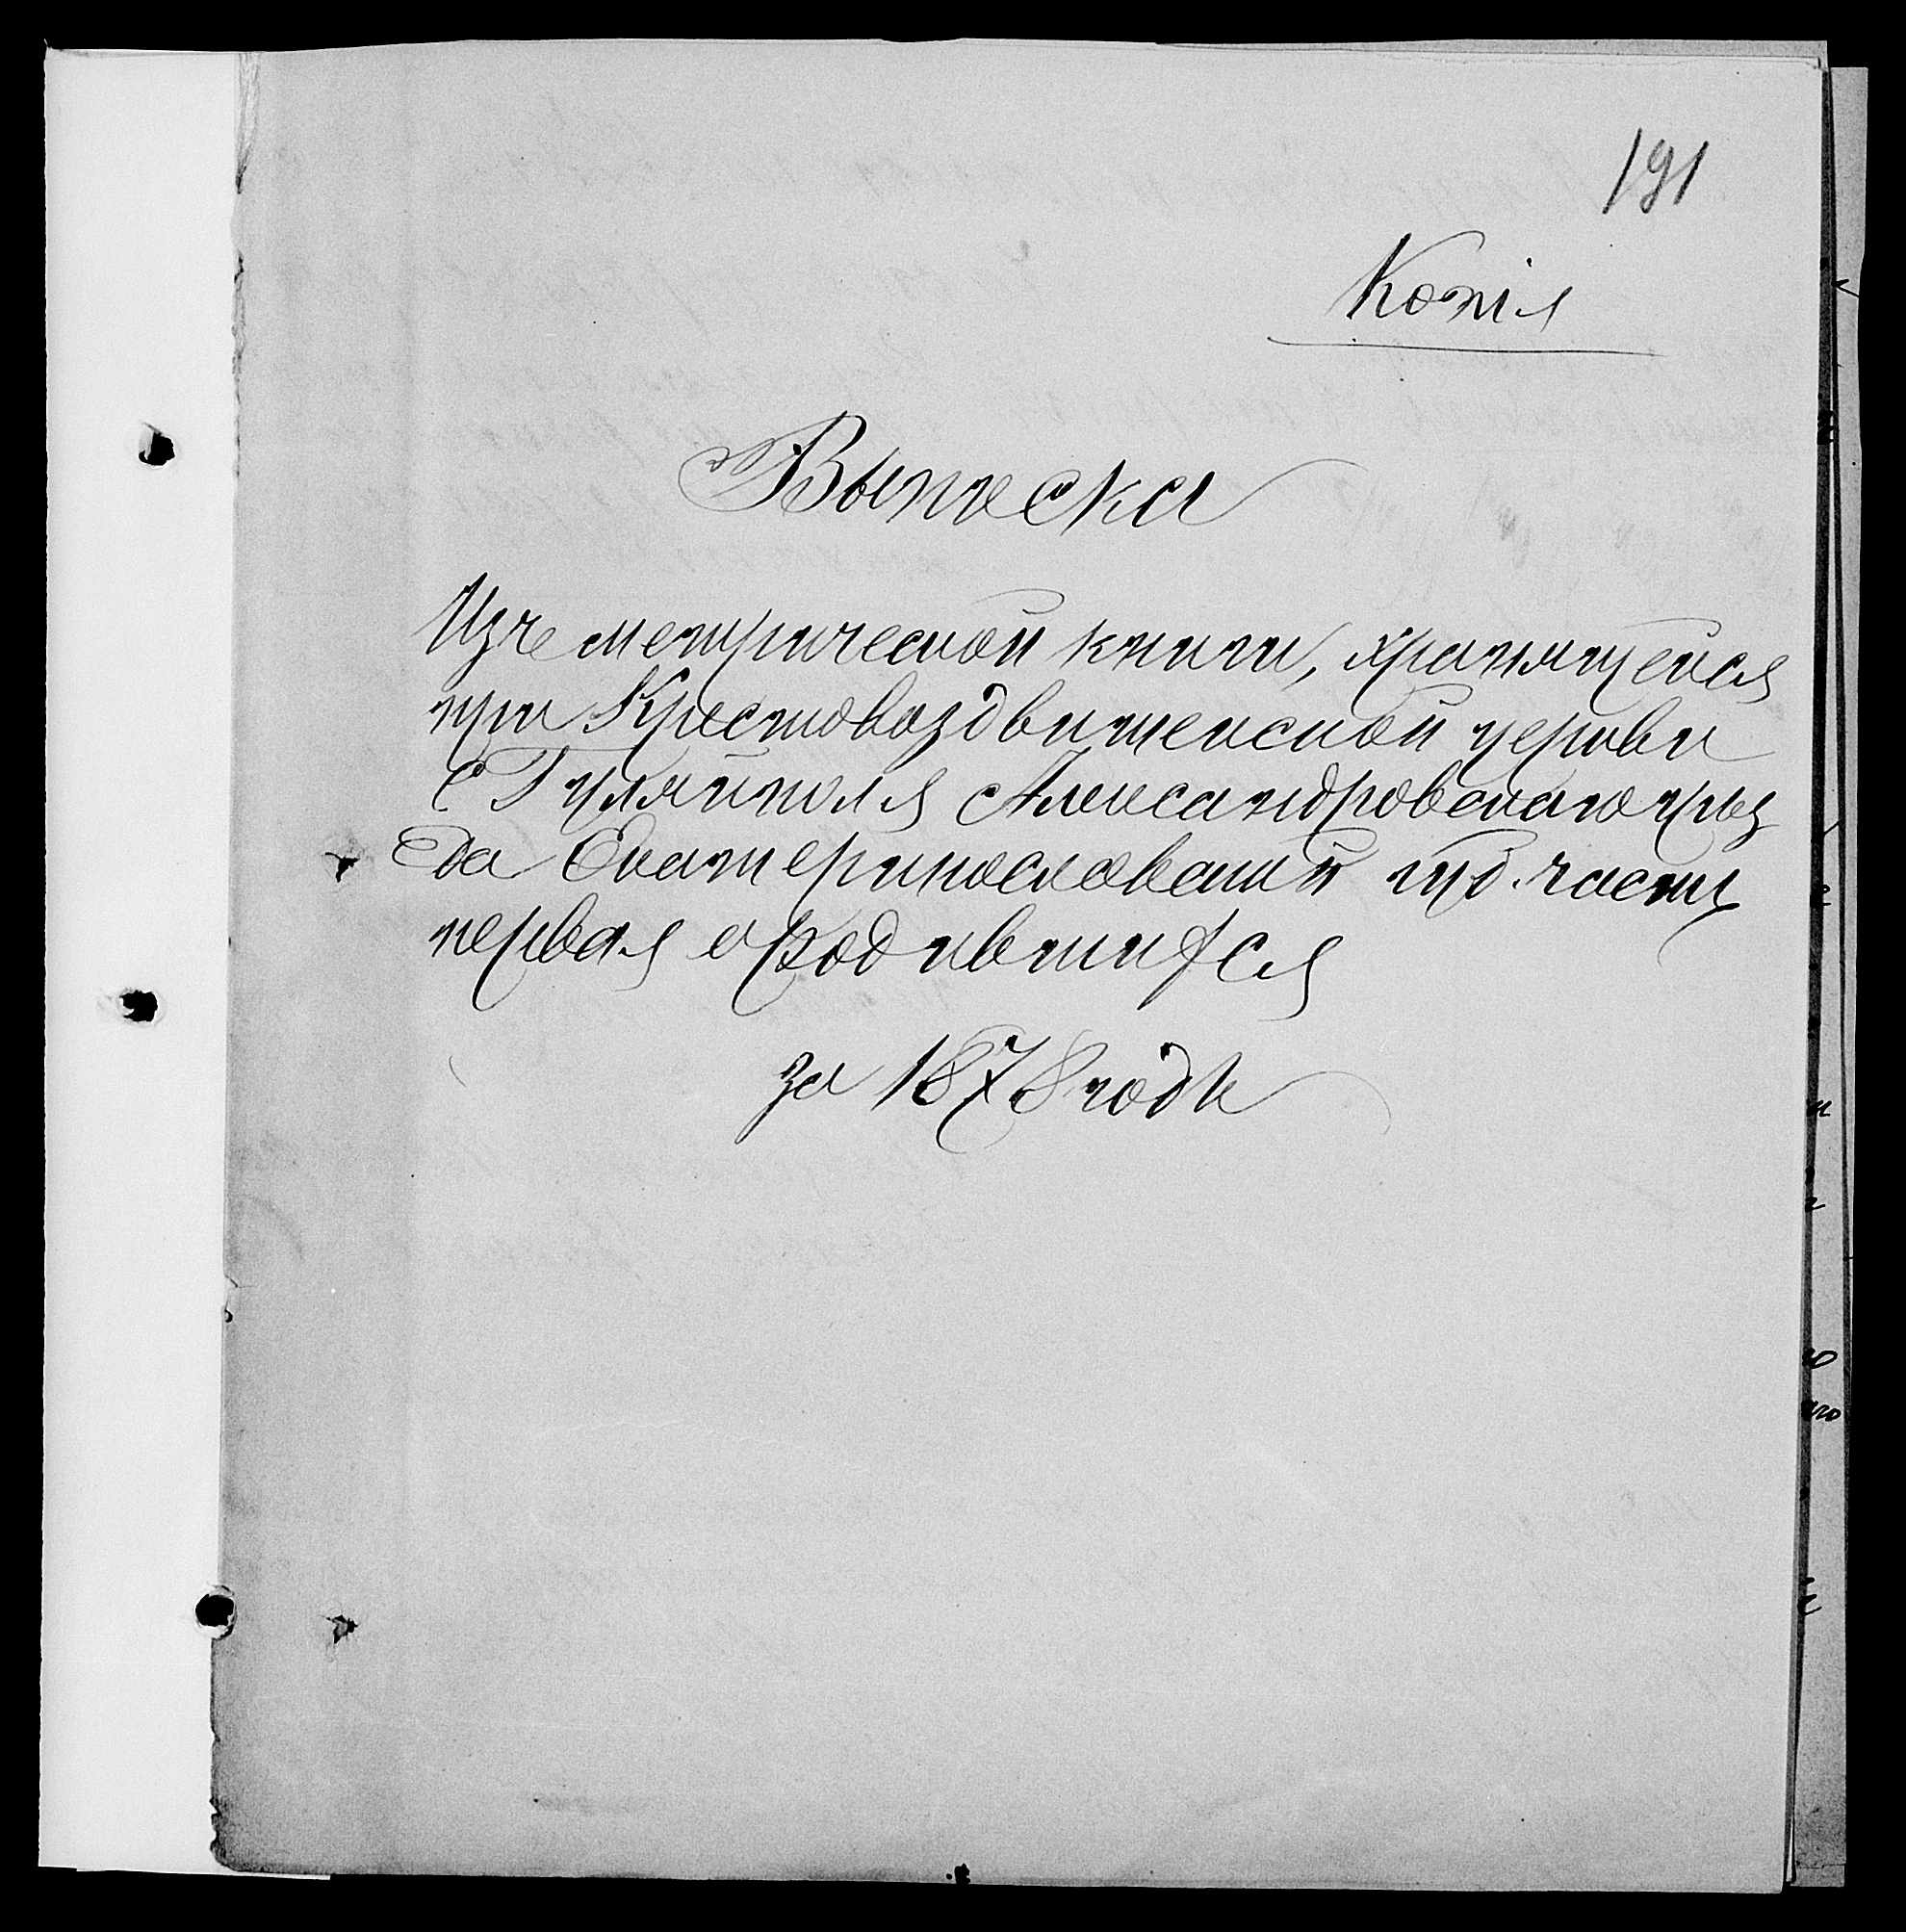 191
Копія
Выписка
Изъ метрической книги, хранящейся
при Крестовоздвиженской церкви
с Гуляйполя Александровскаго уѣз
да Екатеринославской губ. часть
первая о родившихся
за 1878 годъ